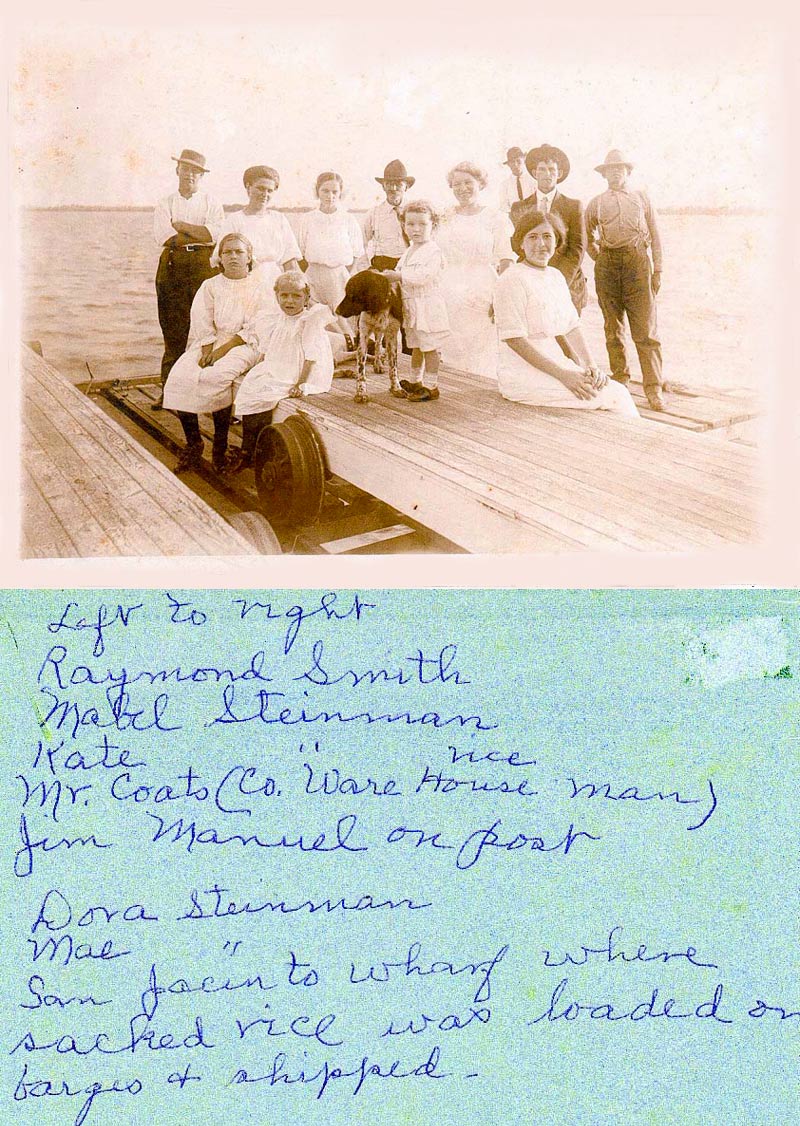 Left to right
Raymond Smith
Mabel Steinman
Kate "
rice
Mr. Coats (Co. Ware House man)
Jim Manuel on post
Dora Steinman
Mae "
San Jacinto wharf where
sacked rice was loaded on
barges & shipped -